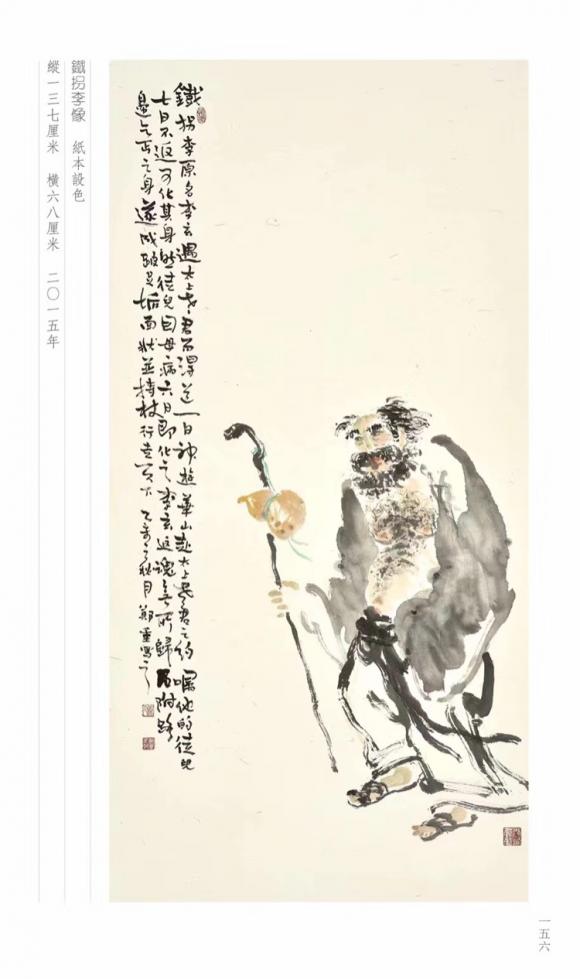 鐵拐李原名李玄遇太上老君而得道一日神遊華山赴太上老君之約囑他的徒兒
七日不返可化其身然徒兒因母病六日即化之李玄返魂無所歸乃附路
邊乞丐之身遂成跛足垢面狀並持杖行走天下 乙未之秋月鄭重寫之
鐵拐李像 紙本設色
縱一三七厘米 橫六八厘米 二〇一五年
一五六